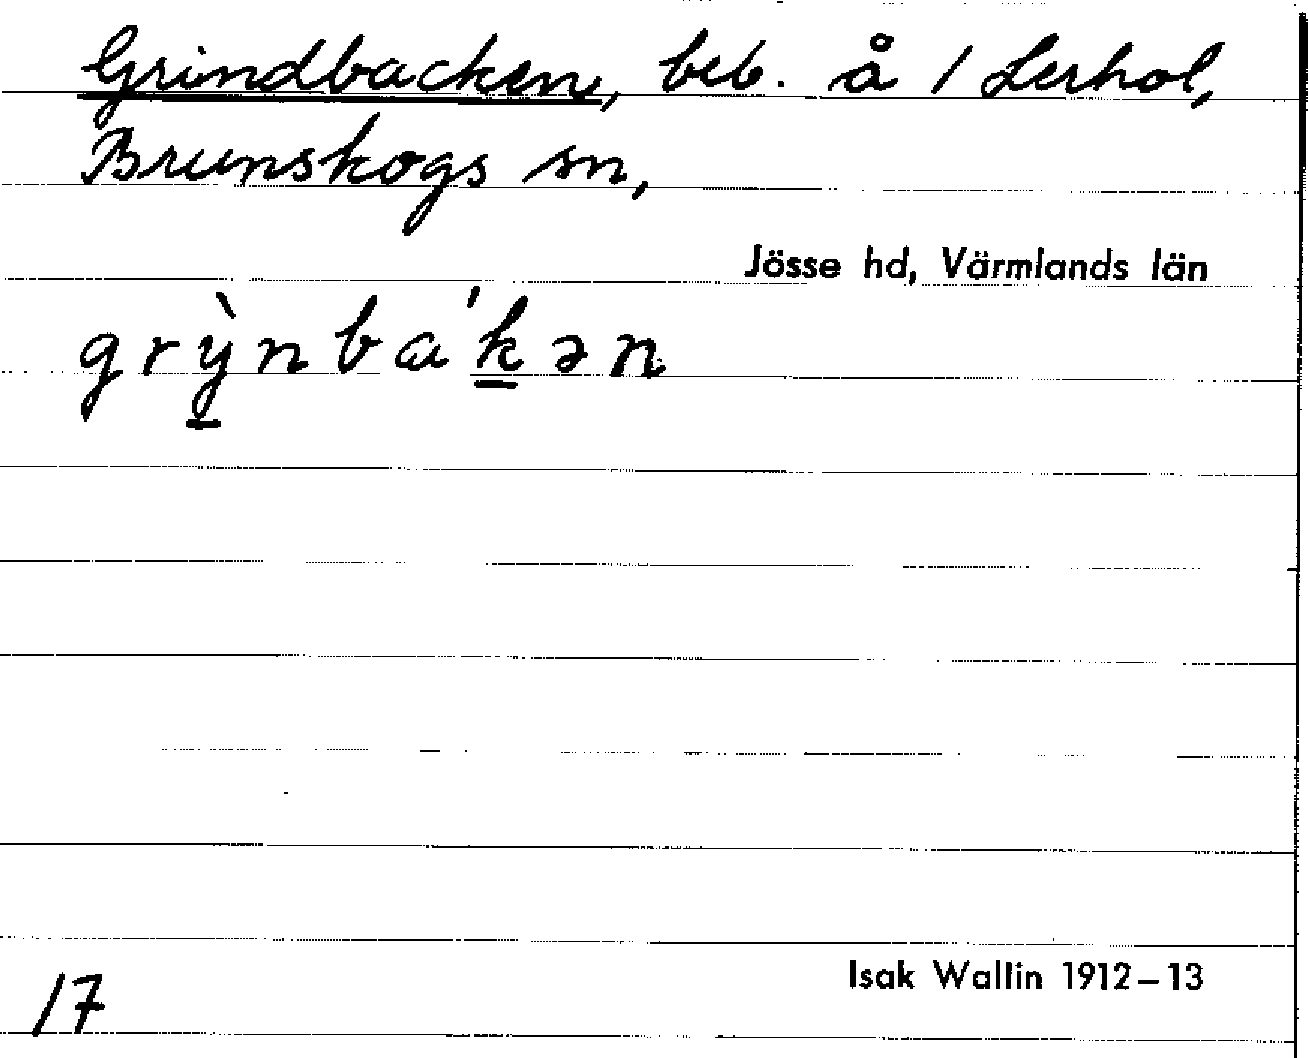 Grindbacken, beb. å 1 Lerhol,
Brunskogs sn,
Jösse hd, Värmlands län
grỳ̠nba'k̠ən
Isak Wallin 1912–13
/7